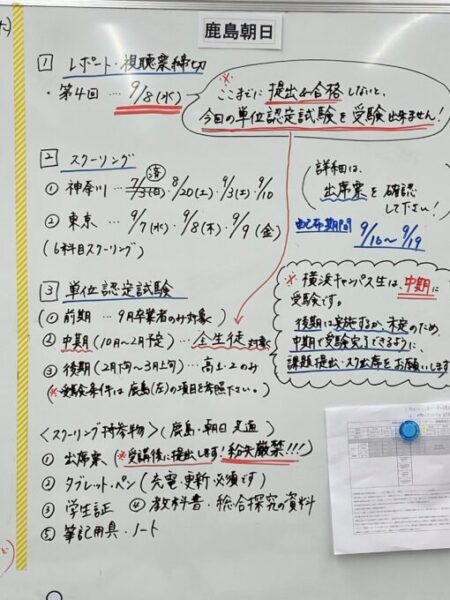 鹿島朝日
1 レポート・視聴票締切
・第4回 … 9/8(水)
※ ここまでに提出&合格しないと、
今回の単位認定試験を受験出来ません!
2 スクーリング
済
① 神奈川 … 7/3(日)・8/20(土)・9/3(土)・9/10
② 東京 … 9/7(水)・9/8(木)・9/9(金)
(6科目スクーリング)
詳細は、
出席票を確認
して下さい!
配布期間 9/16~9/19
3 単位認定試験
① 前期 … 9月卒業者のみ対象
② 中期(10月~2月予定) … 全生徒対象
③ 後期(2月下旬~3月上旬) … 高1・2のみ
(※受験条件は鹿島(左)の項目を参照下さい。)
※ 横浜キャンパス生は、中期に
受験です。
後期は実施するか、未定のため、
中期で受験完了できるように、
課題提出・スク出席をお願いします
<スクーリング持参物>(鹿島・朝日共通)
① 出席票(※受講後に提出します!紛失厳禁!!!
② タブレット・ペン(充電・更新必須です)
③ 学生証 ④ 教科書・総合探究の資料
⑤ 筆記用具・ノート